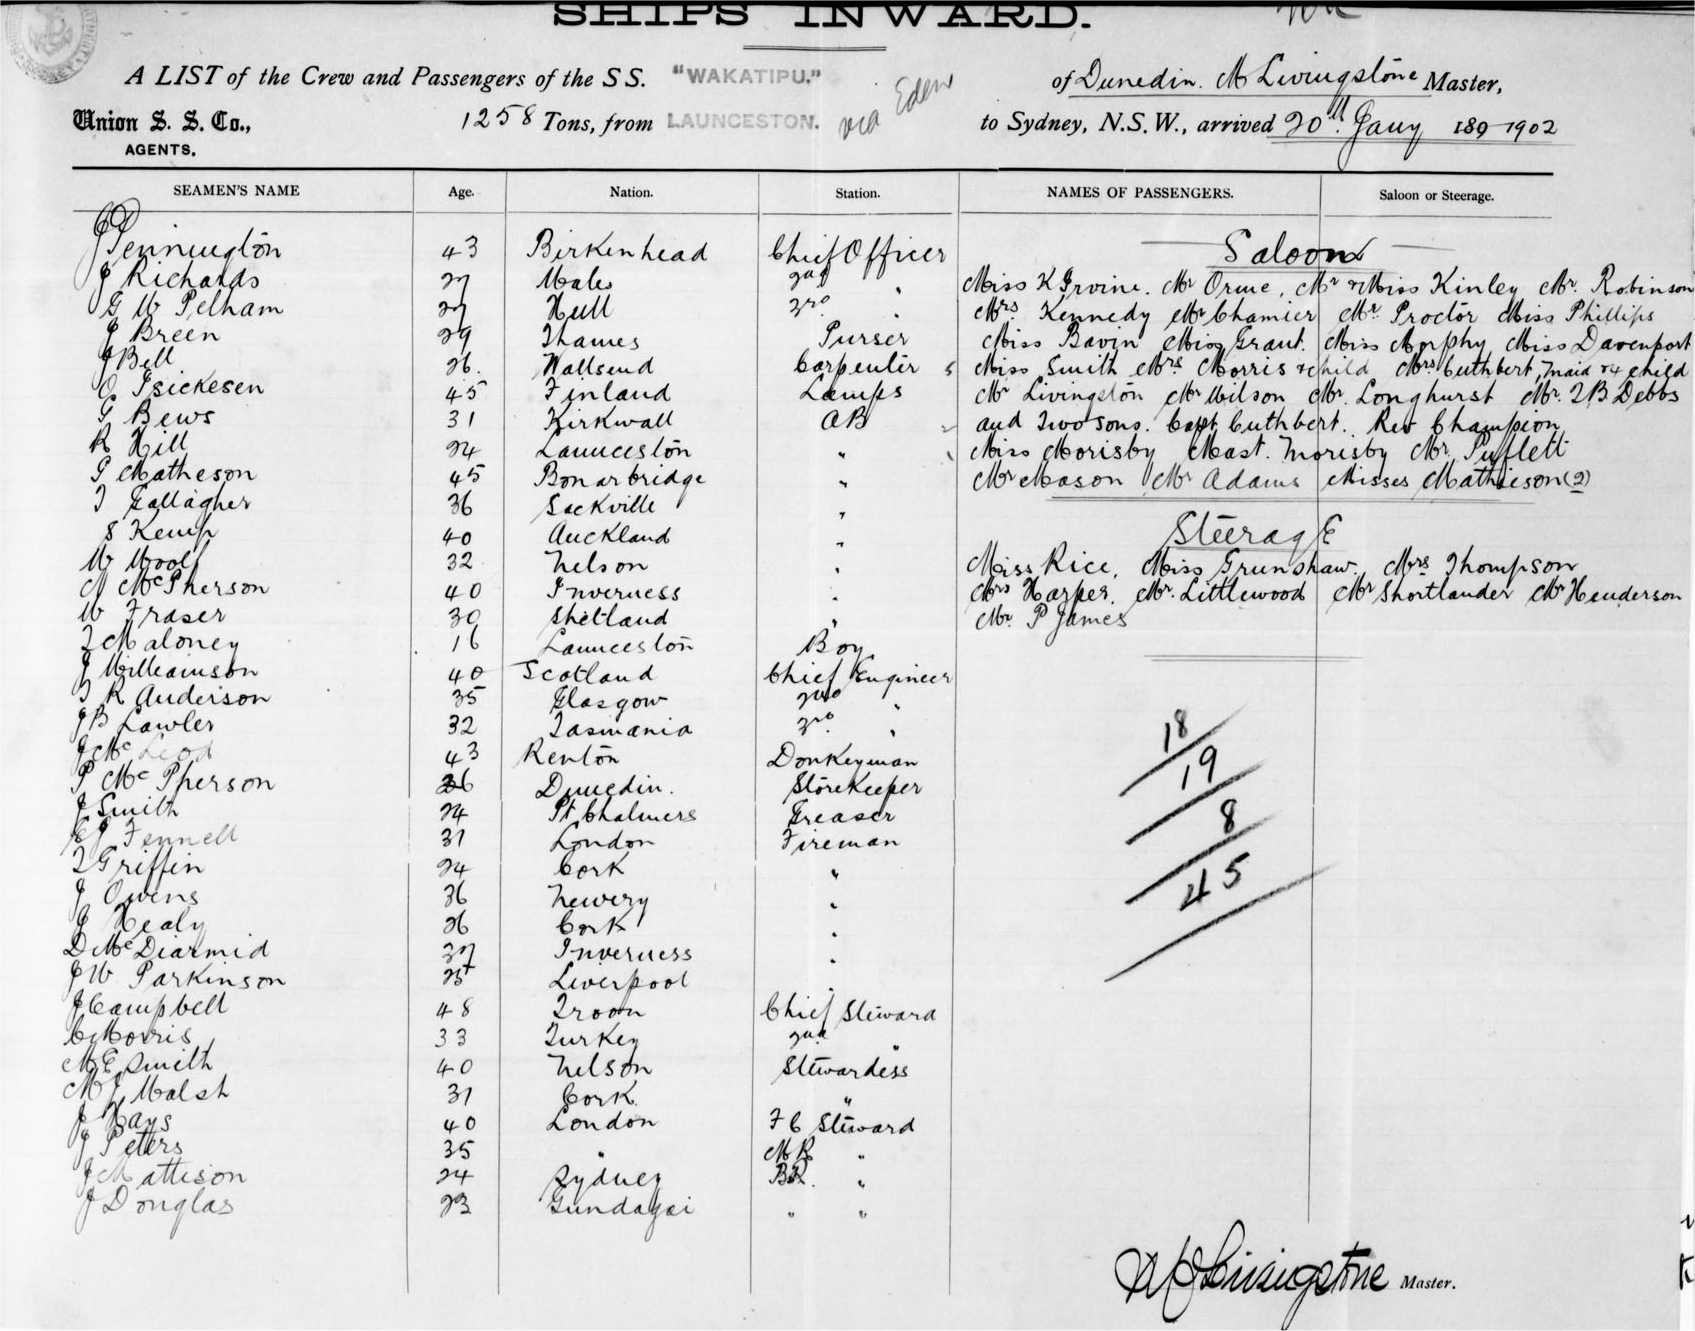 SHIPS INWARD.
A LIST of the Crew and Passengers of the SS. "WAKATIPU." of Dunedin. M Livingstone Master,
Union S. S. Co., 1258 Tons, from LAUNCESTON. via Eden to Sydney, N.S.W., arrived 20th Jany 189 1902
AGENTS.
SEAMEN'S NAME Age. Nation. Station. NAMES OF PASSENGERS. Saloon or Steerage.
J Pennington 43 Birkenhead Chief Officer
J Richards 27 Wales 2nd "
G W Pelham 27 Hull 3rd "
J Breen 29 Thames Purser
J Bell 26. Wallsend Carpenter
45 Finland Lamps
G Bews 31 Kirkwall AB
R Hill 24 Launceston "
G Matheson 45 Bonarbridge "
T Gallagher 36 Sackville "
S Kemp 40 Auckland "
W Woolf 32 Nelson "
McPherson 40 Inverness "
W Fraser 30 Shetland "
T Maloney 16 Launceston Boy
J Williamson 40 Scotland Chief Engineer
T R Anderson 35 Glasgow 2nd "
J B Lawler 32 Tasmania 3rd "
J McLeod 43 Renton Donkeyman
P McPherson 26 Dunedin. Storekeeper
J Smith 24 Pt Chalmers Greaser
E J Fennell 31 London Fireman
T Griffin 24 Cork "
J Owens 36 Newery "
J Healy 26 Cork "
D McDiarmid 37 Inverness "
J W Parkinson 25 Liverpool "
J Campbell 48 Troon Chief Steward
C Morris 33 Turkey 2nd "
M E Smith 40 Nelson Stewardess
M J Walsh 31 Cork "
J Hays 40 London F C Steward
J Peters 35 " M R "
J Mattison 24 Sydney B R. "
J Douglas 23 Gundagai " "
Saloon
Miss K Irvine. Mr Orme, Mr & Miss Kinley Mr. Robinson
Mrs. Kennedy Mr Chamier Mr. Proctor Miss Phillips
Miss Bavin Miss Grant. Miss Morphy Miss Davenport
Miss Smith Mrs Morris & child Mrs Cuthbert, maid & 4 child
Mr Livingston Mr Wilson Mr. Longhurst Mr. T B Debbs
and Two sons. Capt Cuthbert. Rev Champion
Miss Morisby Mast. Morisby Mr. Puflett
Mr Mason Mr Adams Misses Mathieson (2)
Steerage
Miss Rice, Miss Grunshaw. Mrs Thompson
Mrs Harper. Mr. Littlewood Mr Shortlander Mr Henderson
Mr. P James
18
19
8
45
Livingstone Master.